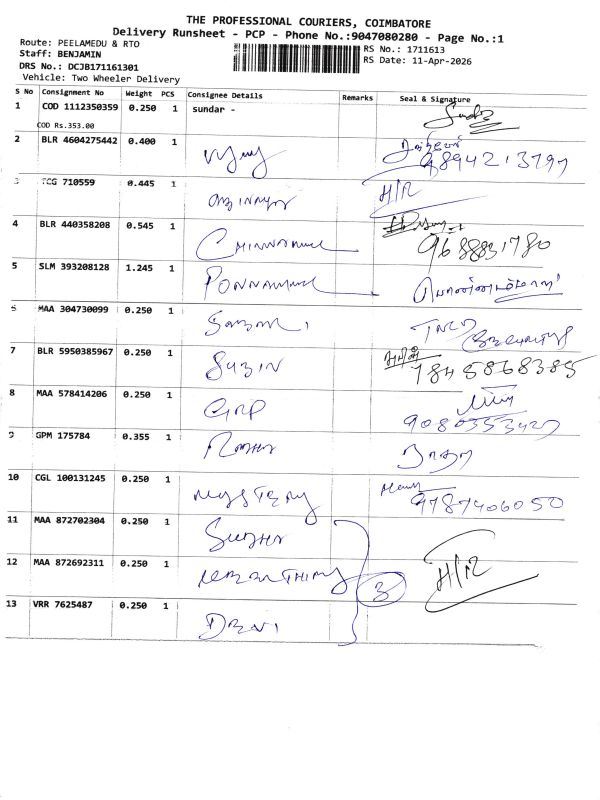 THE PROFESSIONAL COURIERS, COIMBATORE
Delivery Runsheet - PCP - Phone No.:9047080280 - Page No.:1
Route: PEELAMEDU & RTO
Staff: BENJAMIN
DRS No.: DCJB171161301
Vehicle: Two Wheeler Delivery
RS No.: 1711613
RS Date: 11-Apr-2026
S No Consignment No Weight PCS Consignee Details Remarks Seal & Signature
1 COD 1112350359 0.250 1 sundar -
COD Rs.353.00
2 BLR 4604275442 0.400 1 9894213797
3 TCG 710559 0.445 1 H/R
4 BLR 440358208 0.545 1 9688831780
5 SLM 393208128 1.245 1
6 MAA 304730099 0.250 1
7 BLR 5950385967 0.250 1 7845868385
8 MAA 578414206 0.250 1 9080353427
9 GPM 175784 0.355 1
10 CGL 100131245 0.250 1 9787406050
11 MAA 872702304 0.250 1
12 MAA 872692311 0.250 1 3 H/R
13 VRR 7625487 0.250 1